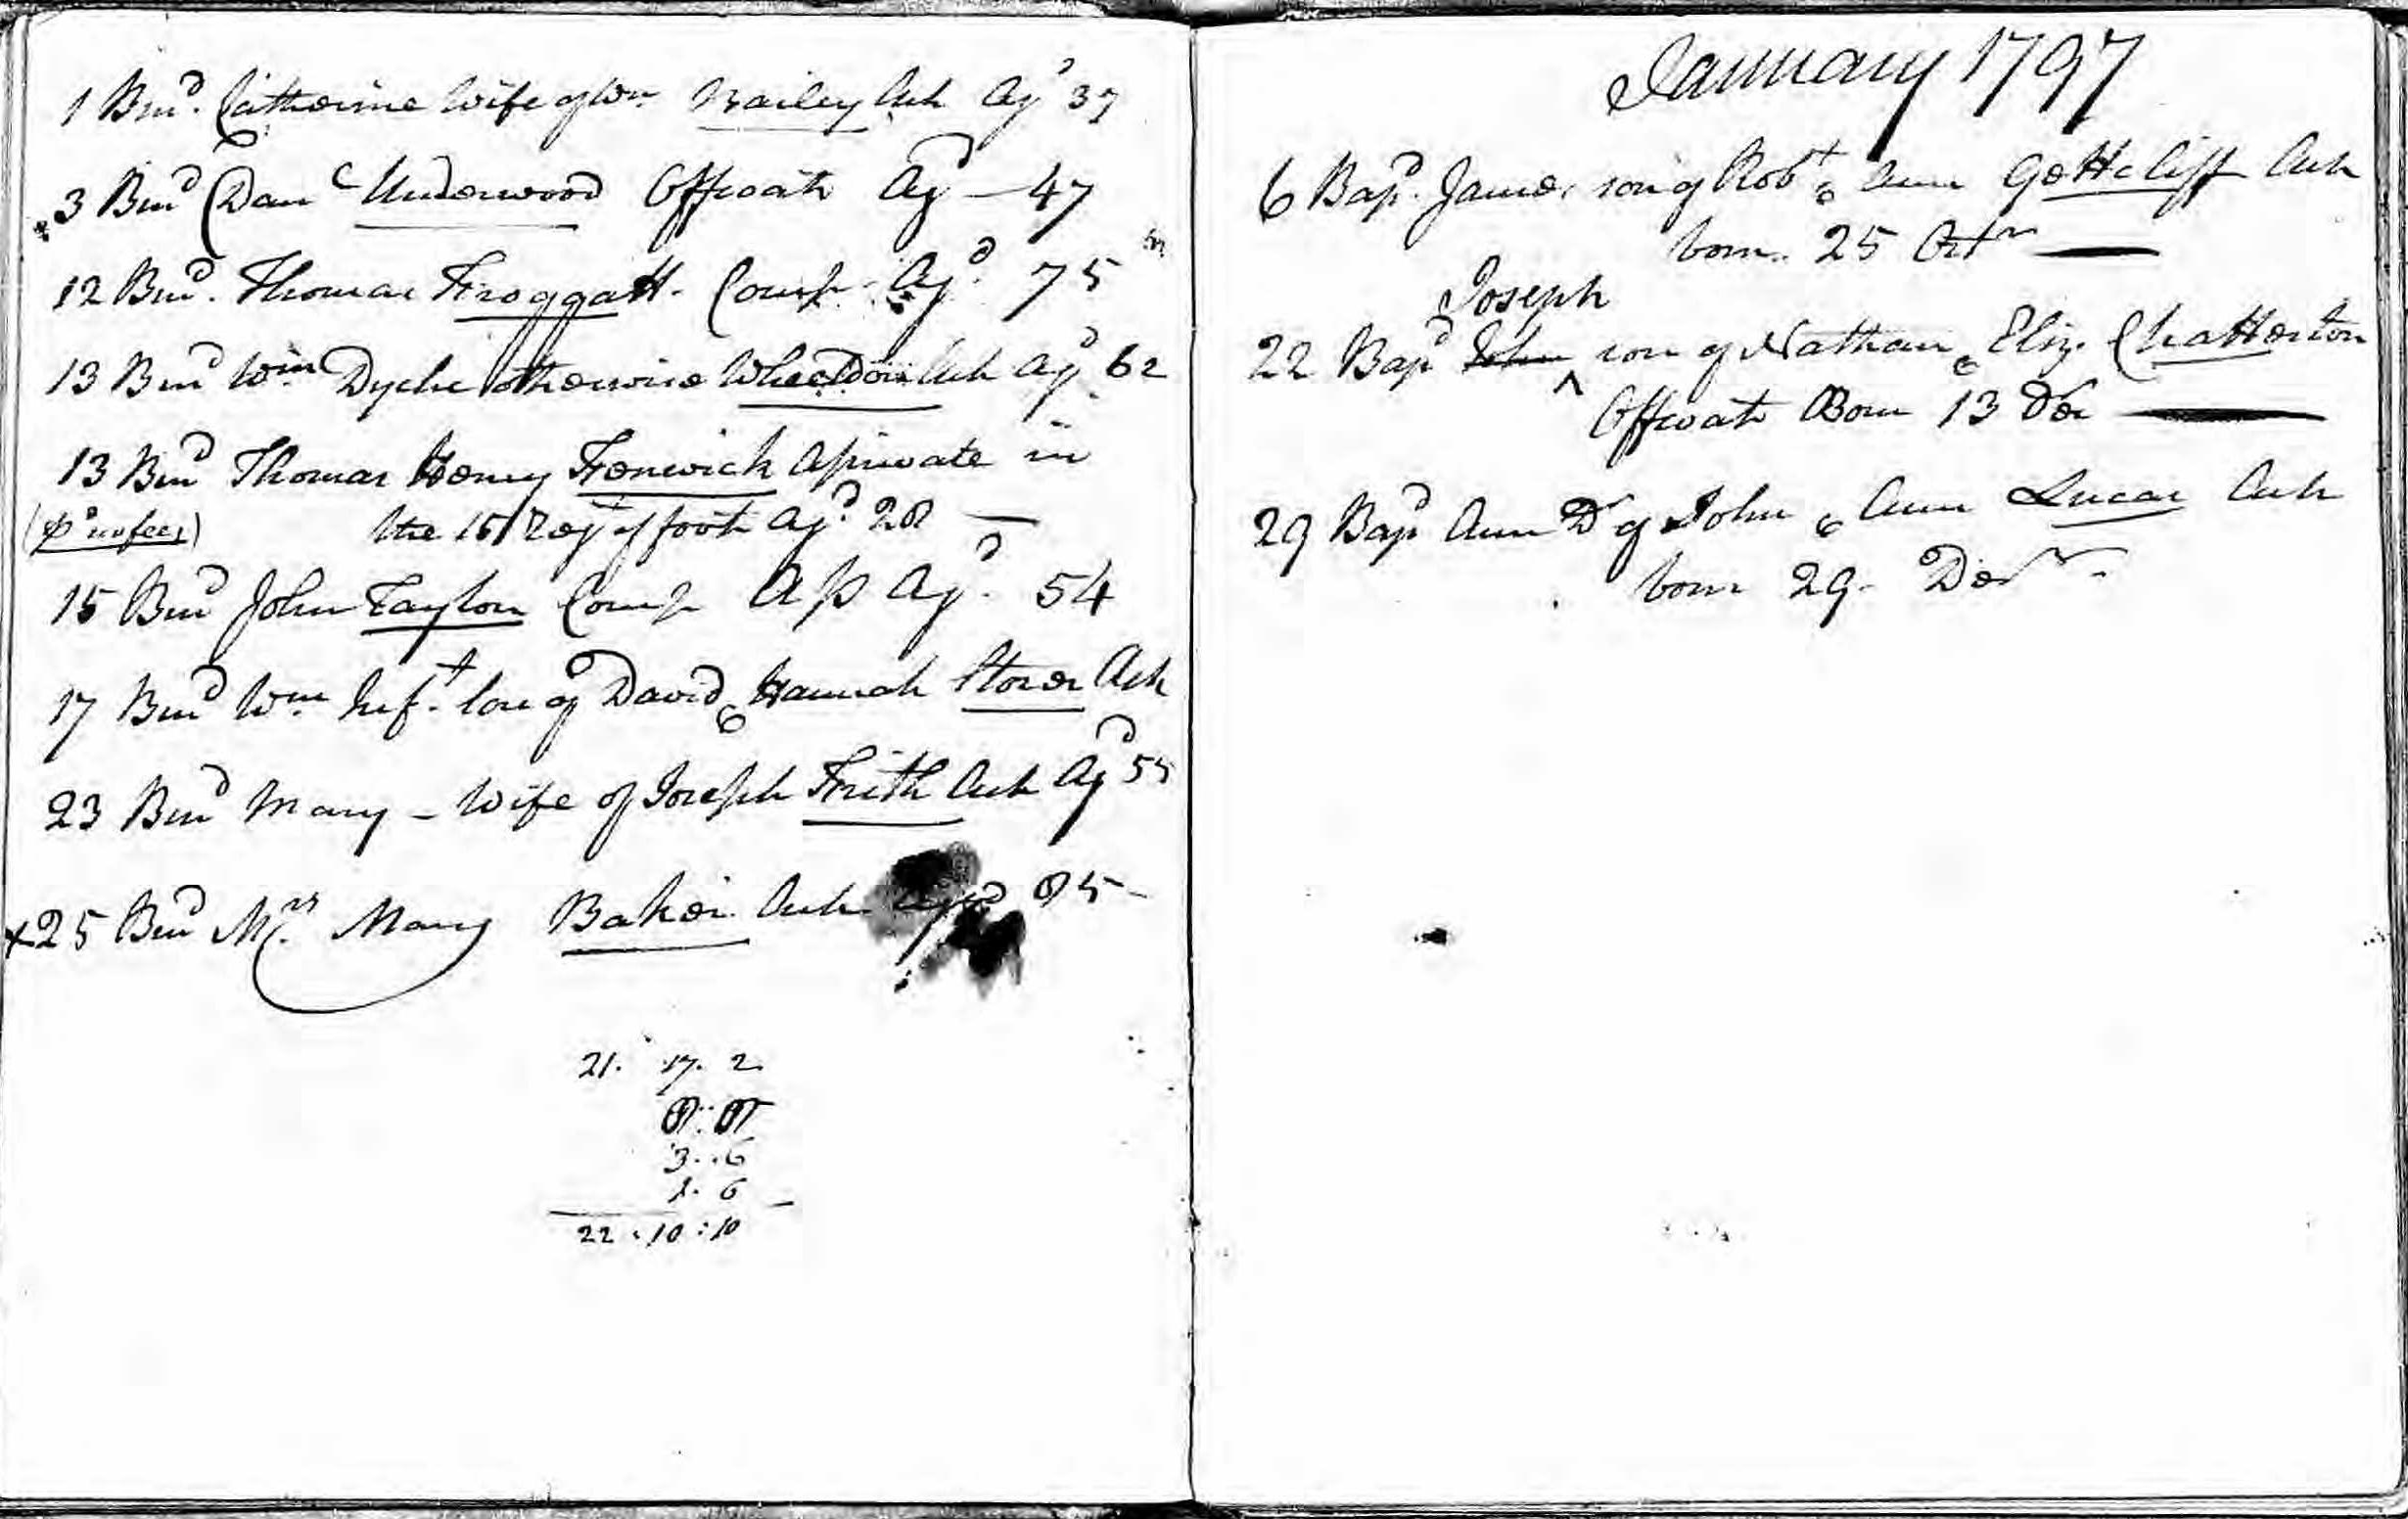 1 Bur.d Catherine Wife of Wm Bailey Ash Ag.d 37
3 Bur.d Dan.l Underwood Offcoate Ag.d — 47
12 Bur.d Thomas Froggatt. Comp. Ag.d 75
13 Bur.d Wm Dyche otherwise Wheeldon Ash Ag.d 62
13 Bur.d Thomas Henry Fenwick a private in
(p.d no fees) the 15 Reg.t of foot Ag.d 28 —
15 Bur.d John Taylor Comp AP Ag.d 54
17 Bur.d Wm Inf.t son of David & Hannah Storer Ash
23 Bur.d Mary - Wife of Joseph Frith Ash Ag.d 55
x25 Bur.d Mrs Mary Baker Ash Aged 85 -
21. 17. 2.
8: 8
3..6
1. 6
22 . 10 : 10
January 1797
6 Bap.d James son of Rob.t & Ann Gettcliff Ash
born 25 Oct.r —
Joseph
22 Bap.d John ^ son of Nathan & Eliz. Chatterton
Offcoate Born 13 Der —
29 Bap.d Ann Dr of John & Ann Lucas Ash
born 29. Decr.